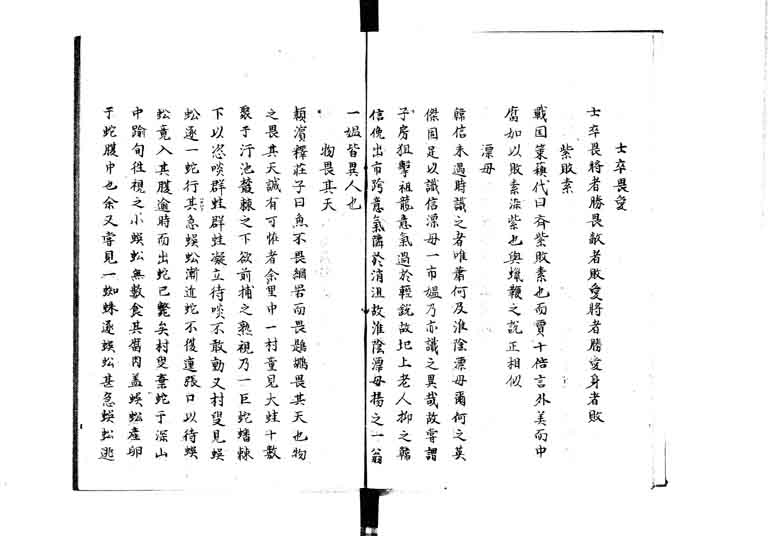 士卒畏愛
士卒畏将者勝畏敵者敗愛将者勝愛身者敗
紫敗素
戰国策蘓代曰齊紫敗素也而賈十倍言外美而中
腐如以敗素染紫也與蠟鞭之説正相似
漂母
韓信未遇時識之者唯蕭何及淮陰漂母爾何之英
傑固足以識信漂母一市媪乃亦識之異哉故嘗謂
子房狙擊祖龍意氣過於輕銳故圯上老人抑之韓
信俛出市跨意氣隣於消沮故淮陰漂母揚之一翁
一媪皆異人也
物畏其天
頴濱釋莊子曰魚不畏網罟而畏鵜鶘畏其天也物
之畏其天誠有可恠者余里中一村童見大蛙十數
聚于汙池叢棘之下欲前捕之熟視乃一巨蛇蟠棘
下以恣啖群蛙群蛙凝立待啖不敢動又村叟見蜈
蚣逐一蛇行甚急蜈蚣漸近蛇不復動張口以待蜈
蚣竟入其腹逾時而出蛇已斃矣村叟棄蛇于深山
中踰旬往視之小蜈蚣無數食其腐肉盖蜈蚣產卵
于蛇腹中也余又嘗見一蜘蛛逐蜈蚣甚急蜈蚣逃